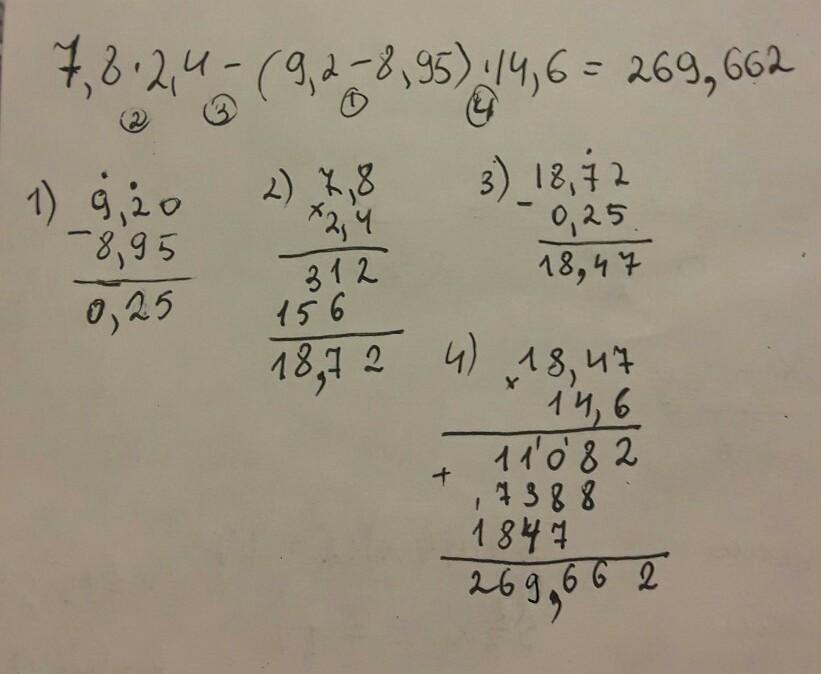 7,8·2,4-(9,2-8,95)·14,6= 269,662
② ③ ① ④
1) 9,20
-8,95
0,25
2) 7,8
×2,4
312
156
18,72
3) 18,72
-0,25
18,47
4) ×18,47
14,6
11082
+ 7388
1847
269,662